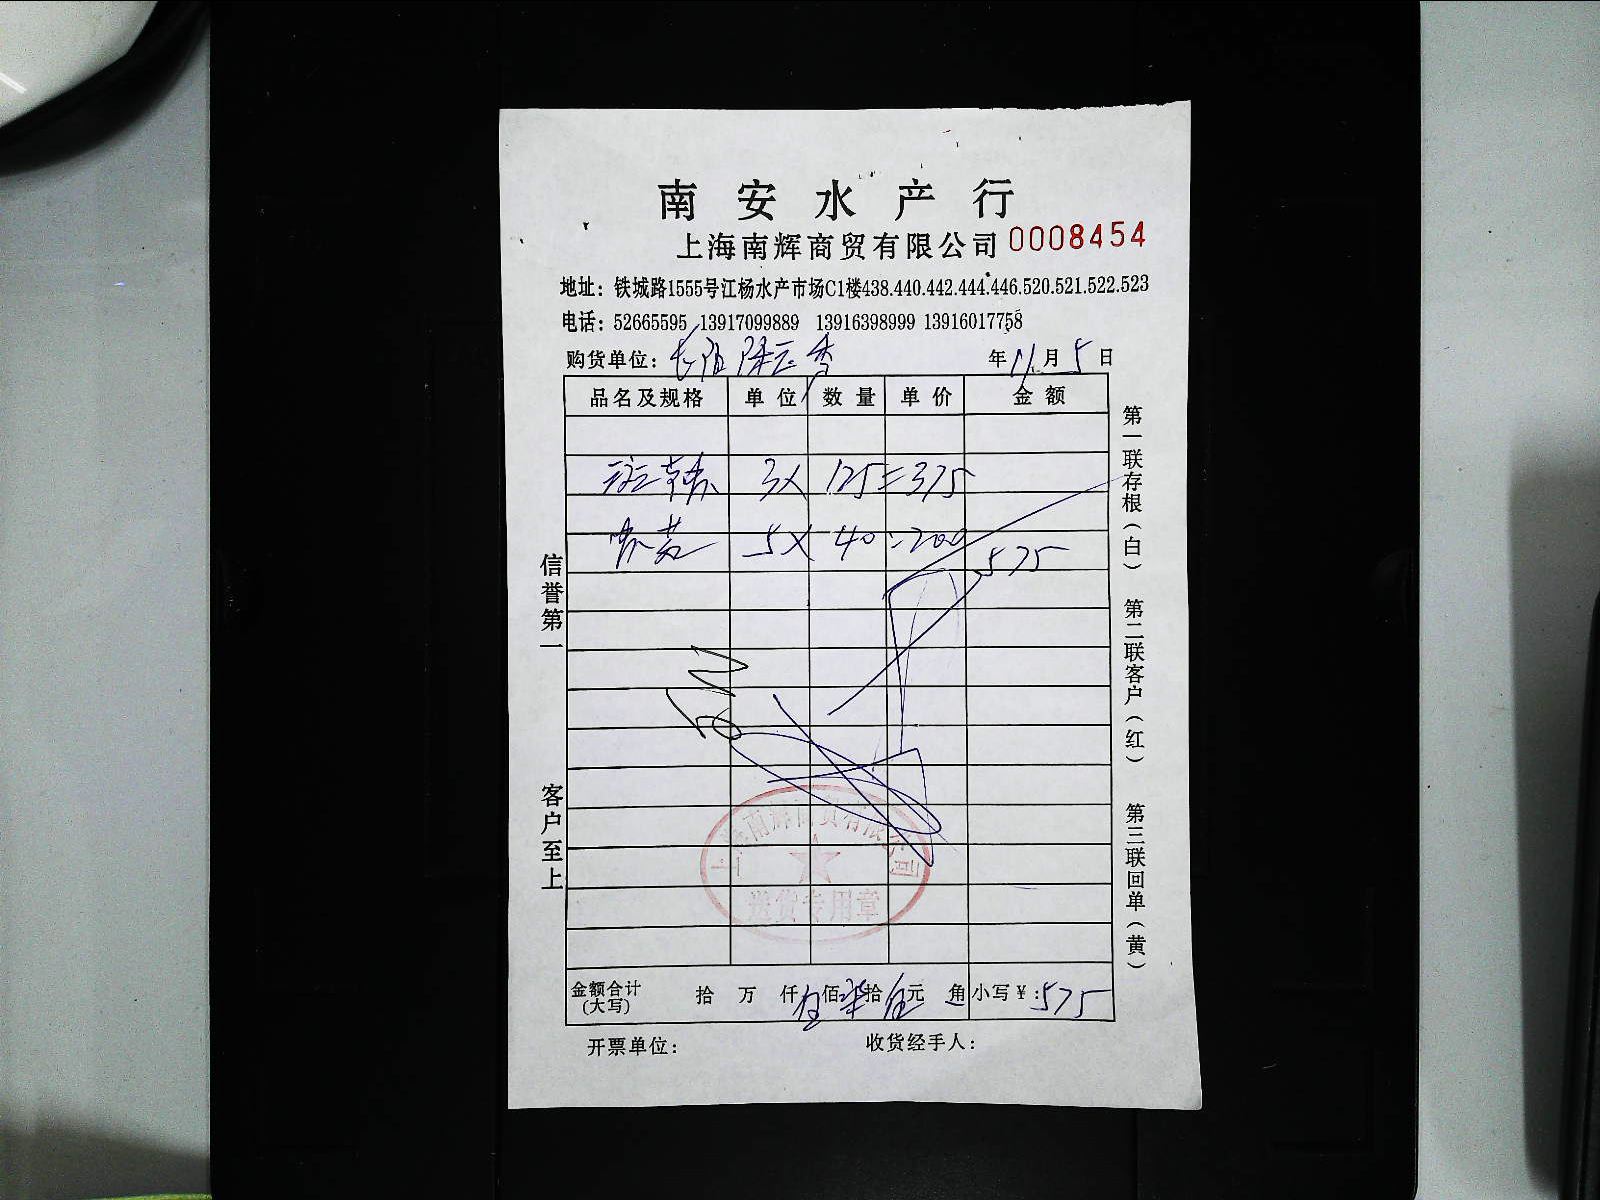 南安水产行
上海南辉商贸有限公司 0008454
地址：铁城路1555号江杨水产市场C1楼438.440.442.444.446.520.521.522.523
电话：52665595 13917099889 13916398999 13916017758
购货单位： 年 11 月 5 日
品名及规格 单位 数量 单价 金额
3× 125=375
5× 40=200
575
信誉第一
客户至上
第一联存根（白）
第二联客户（红）
第三联回单（黄）
上海南辉商贸有限公司
送货专用章
金额合计（大写） 拾 万 仟 伍佰 柒拾 伍元 角 小写￥：575
开票单位： 收货经手人：